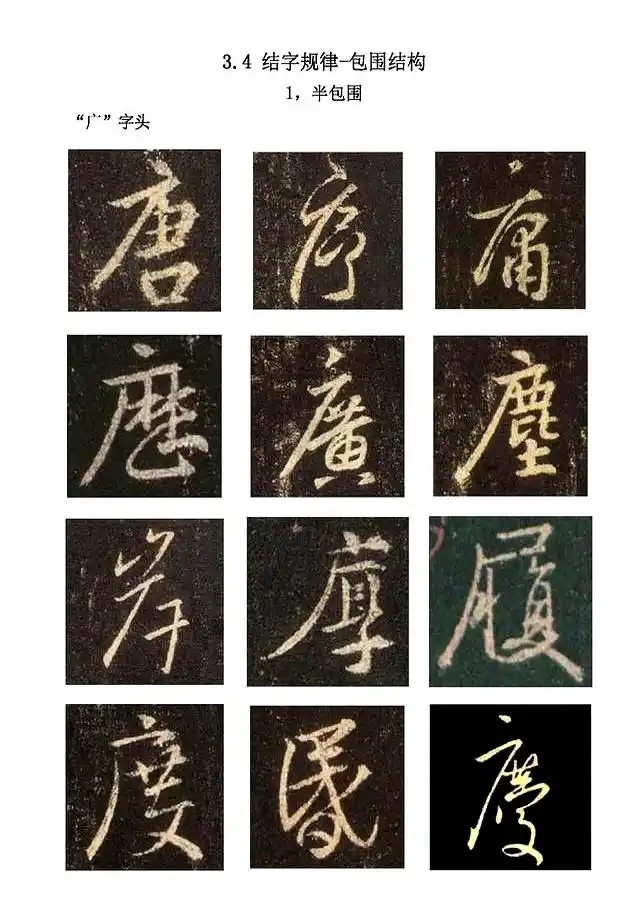 3.4 结字规律-包围结构
1，半包围
“广”字头
唐 序 庸
歷 廣 塵
岸 厚 履
度 昬 慶